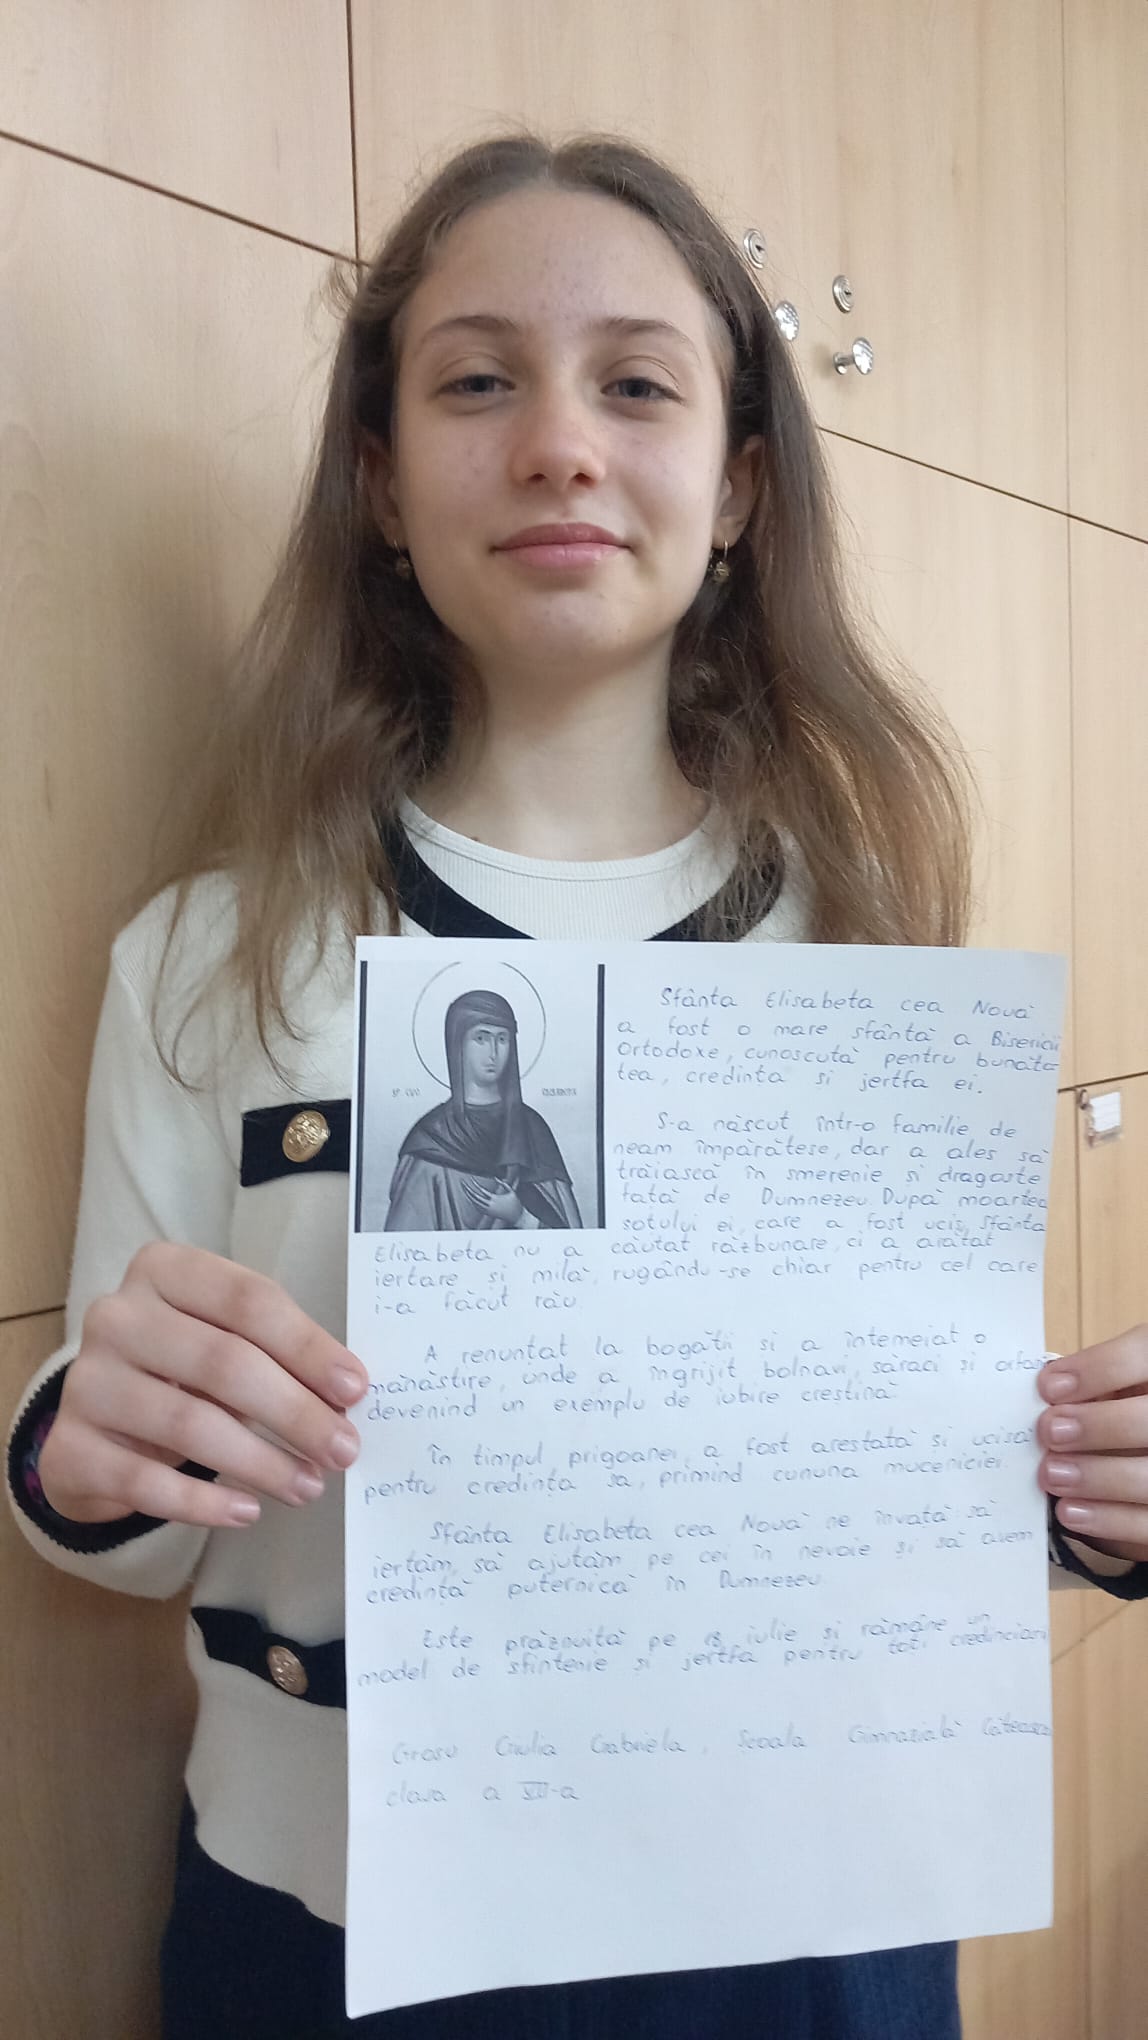 Sfânta Elisabeta cea Nouă
a fost o mare sfântă a Bisericii
Ortodoxe, cunoscută pentru bunăta-
tea, credinta si jertfa ei.
S-a născut într-o familie de
neam împărătesc, dar a ales să
trăiască în smerenie si dragoste
fată de Dumnezeu. După moartea
sotului ei, care a fost ucis, Sfânta
Elisabeta nu a căutat răzbunare, ci a arătat
iertare și milă, rugându-se chiar pentru cel care
i-a făcut rău.
A renunțat la bogății si a întemeiat o
mănăstire, unde a îngrijit bolnavi, săraci si orfani
devenind un exemplu de iubire crestină.
În timpul prigoanei, a fost arestată si ucisă
pentru credința sa, primind cununa muceniciei.
Sfânta Elisabeta cea Nouă ne învată să
iertăm, să ajutăm pe cei în nevoie și să avem
credință puternică în Dumnezeu.
Este prăznuită pe 18 iulie și rămâne un
model de sfintenie si jertfa pentru toti credincioșii
Grosu Giulia Gabriela, Scoala Gimnazială Căteasca
clasa a VII-a